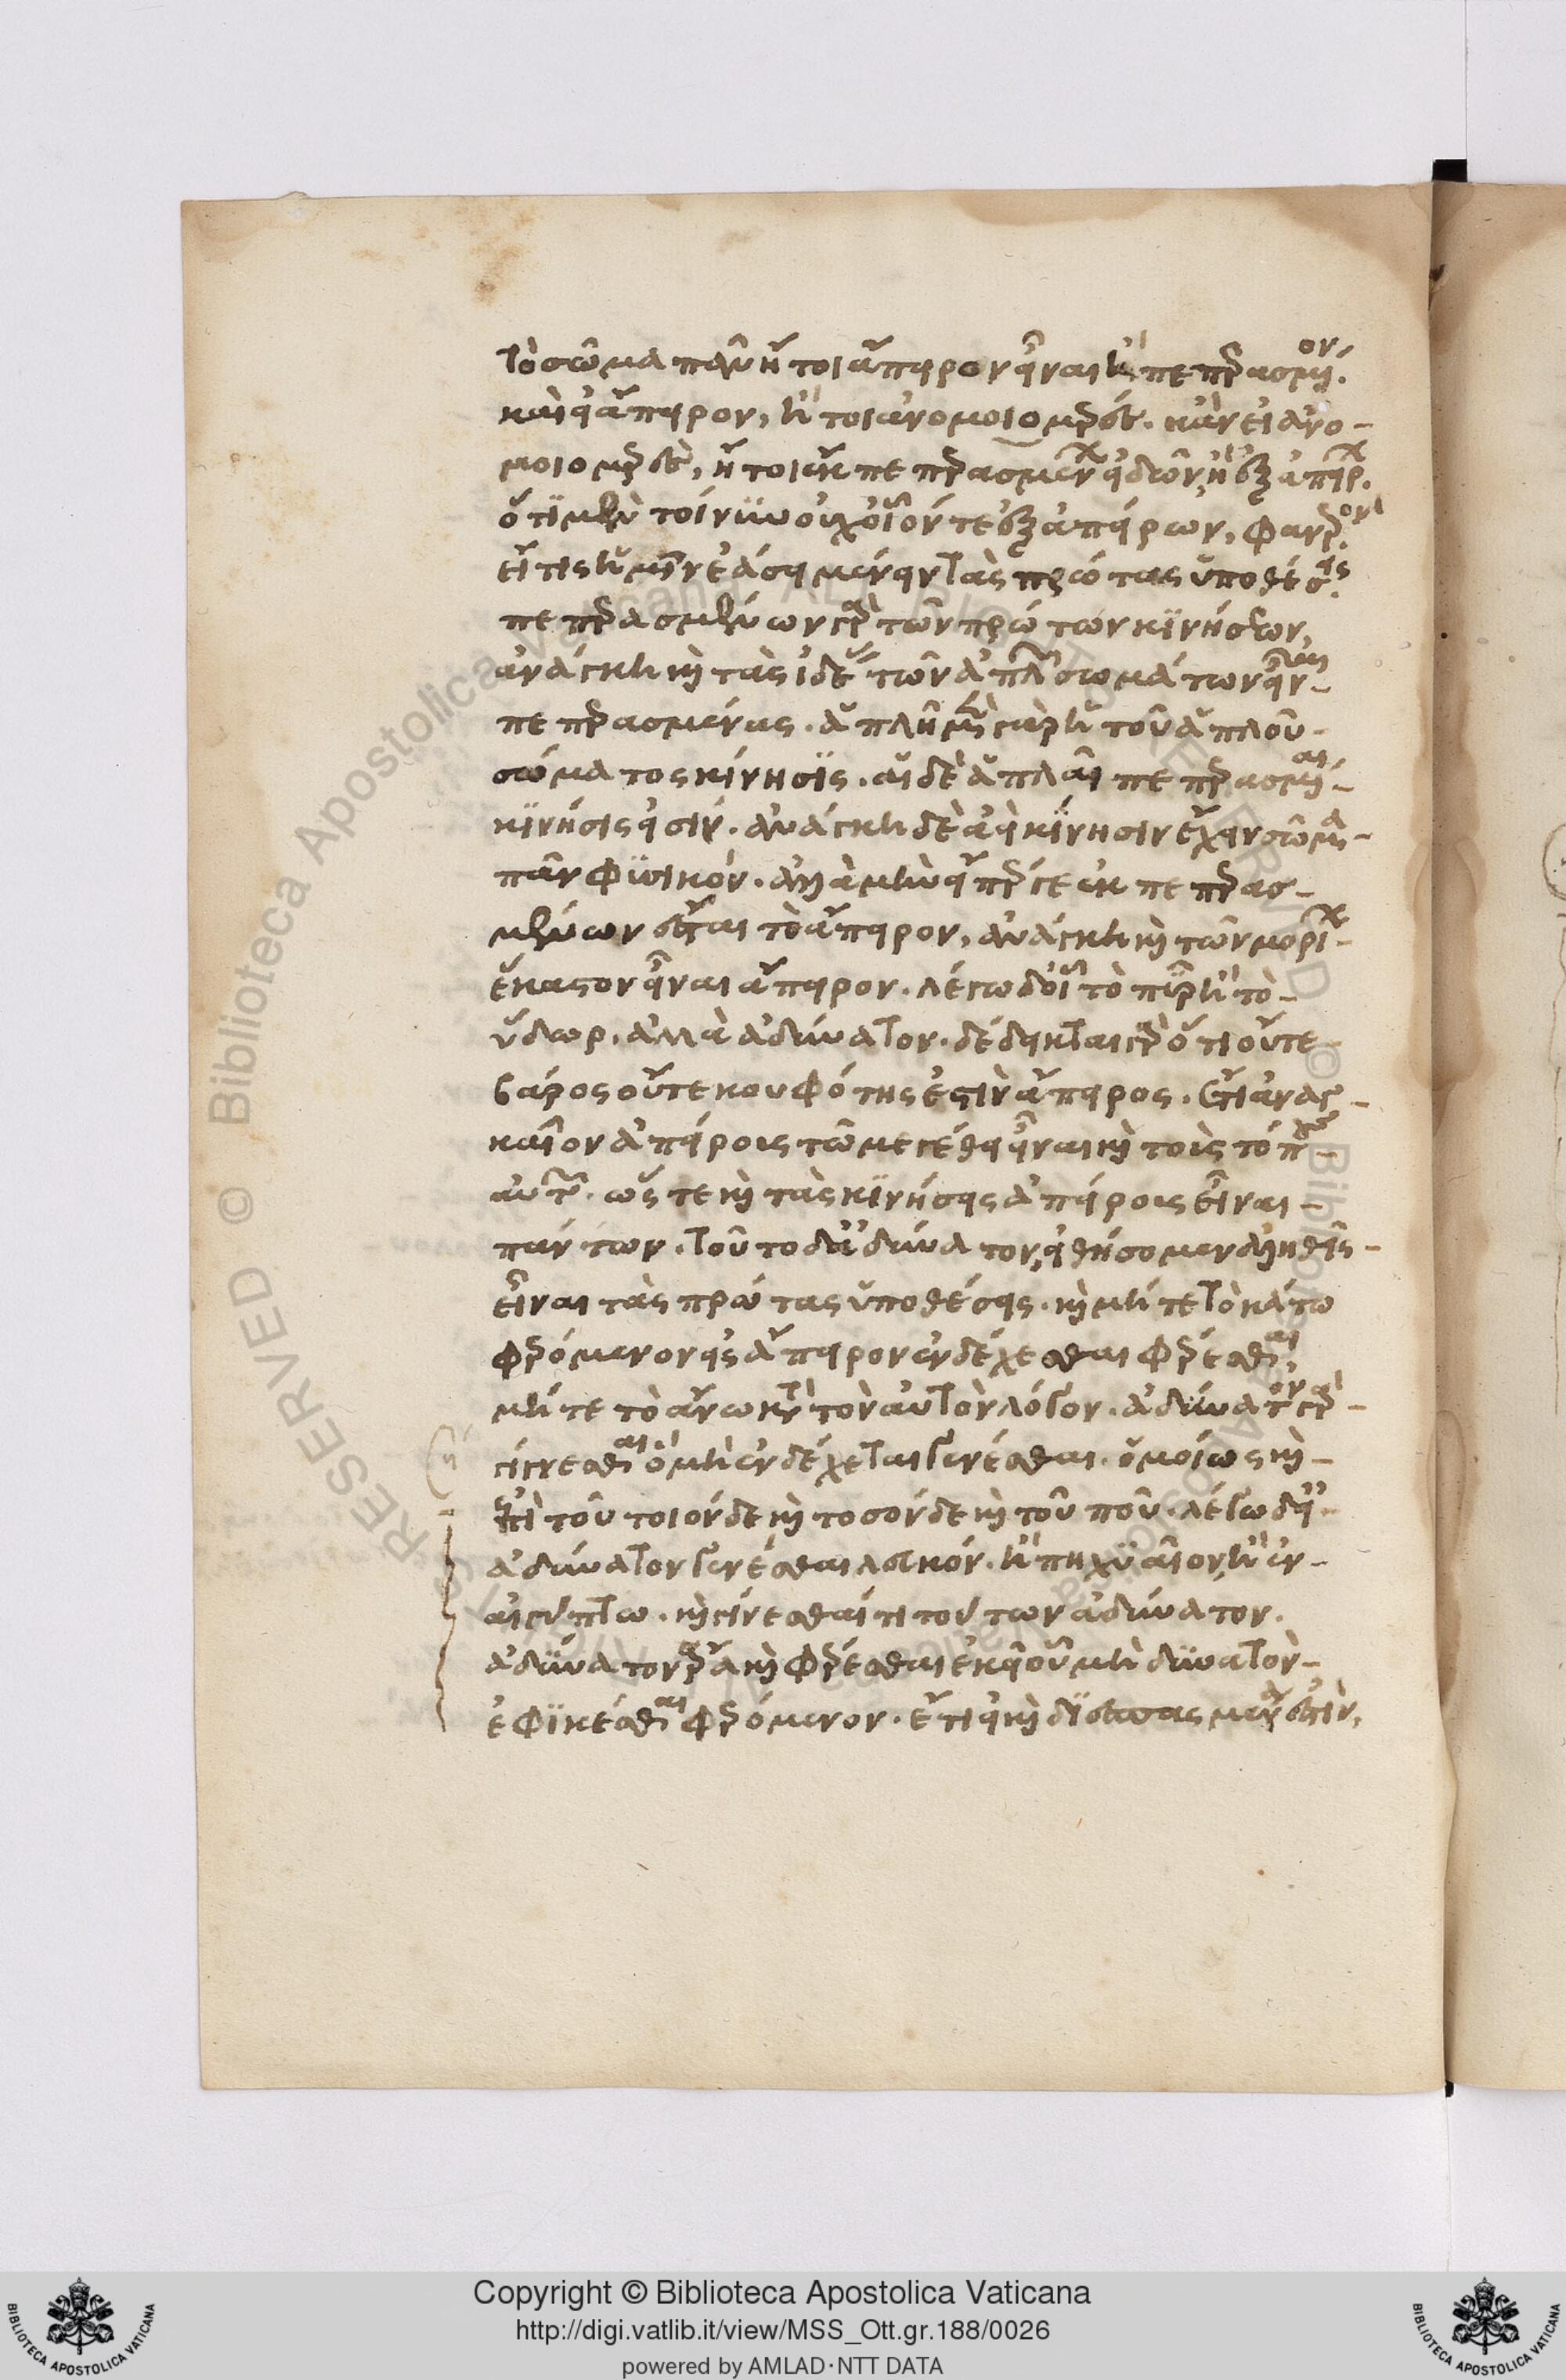 τὸ σῶμα πᾶν ἤτοι ἄπειρον εἶναι ἢ πεπερασμένον.
καὶ εἰ ἄπειρον, ἤτοι ἀνομοιομερές. κἂν εἰ ἀνο-
μοιομερὲς, ἤτοι ἐκ πεπερασμένων εἰδῶν, ἢ ἐξ ἀπείρων.
ὅτι μὲν τοίνυν οὐχ οἷόν τε ἐξ ἀπείρων, φανερὸν.
εἴ τις ἡμῖν ἐάσει μένειν τὰς πρώτας ὑποθέσεις.
πεπερασμένων γὰρ τῶν πρώτων κινήσεων,
ἀνάγκη καὶ τὰς ἰδέας τῶν ἁπλῶν σωμάτων εἶναι-
πεπερασμένας. ἁπλῆ μὲν γὰρ ἡ τοῦ ἁπλοῦ-
σώματος κίνησις. αἱ δὲ ἁπλαῖ πεπερασμέναι-
κινήσις εἰσίν. ἀνάγκη δὲ ἀεὶ κίνησιν ἔχειν σῶμα-
πᾶν φυσικόν. ἀλλὰ μὴν εἴπερ γε ἐκ πεπερασ-
μένων ἔσται τὸ ἄπειρον, ἀνάγκη καὶ τῶν μορίων-
ἕκαστον εἶναι ἄπειρον. λέγω δ' οἷον τὸ πῦρ ἢ τὸ-
ὕδωρ. ἀλλὰ ἀδύνατον. δέδεικται γὰρ ὅτι οὔτε-
βάρος οὔτε κουφότης ἐστὶν ἄπειρος. ἔτι ἀναγ-
καῖον ἀπείροις τῶ μεγέθει εἶναι καὶ τοῖς τόποις-
αὐτῶν. ὥστε καὶ τὰς κινήσεις ἀπείροις εἶναι-
πάντων. τοῦτο δ' ἀδύνατον, εἰ θήσομεν ἀληθεῖς-
εἶναι τὰς πρώτας ὑποθέσεις. καὶ μήτε τὸ κάτω
φερόμενον εἰς ἄπειρον ἐνδέχεσθαι φέρεσθαι,
μήτε τὸ ἄνω κατὰ τὸν αὐτὸν λόγον. ἀδύνατον γὰρ-
γίγνεσθαι ὃ μὴ ἐνδέχεται γενέσθαι. ὁμοίως καὶ-
ἐπὶ τοῦ τοιόνδε καὶ τοσόνδε καὶ τοῦ ποῦ. λέγω δ' εἰ-
ἀδύνατον γενέσθαι λευκόν. ἢ πηχυαῖον, ἢ ἐν-
αἰγύπτω. καὶ γίνεσθαί τι τούτων ἀδύνατον.
ἀδύνατον ἄρα καὶ φέρεσθαι ἐκεῖ οὗ μὴ δυνατὸν-
ἐφικέσθαι φερόμενον. ἔτι εἰ καὶ μέν ἐστιν,
Copyright © Biblioteca Apostolica Vaticana
http://digi.vatlib.it/view/MSS_Ott.gr.188/0026
powered by AMLAD·NTT DATA